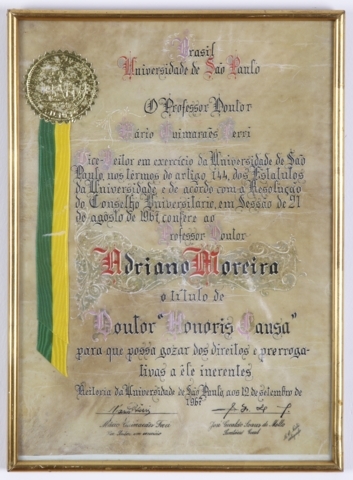 Brasil
Universidade de São Paulo
O Professor Doutor
Mário Guimarães Ferri
Vice-Reitor em exercício da Universidade de São
Paulo, nos termos do artigo 144, dos Estatutos
da Universidade e de acordo com a Resolução
do Conselho Universitário, em Sessão de 21
de agosto de 1967, confere ao
Professor Doutor
Adriano Moreira
o título de
Doutor "Honoris Causa"
para que possa gozar dos direitos e prerroga-
tivas a êle inerentes
Reitoria da Universidade de São Paulo, aos 12 de setembro de
1967
Mário Guimarães Ferri